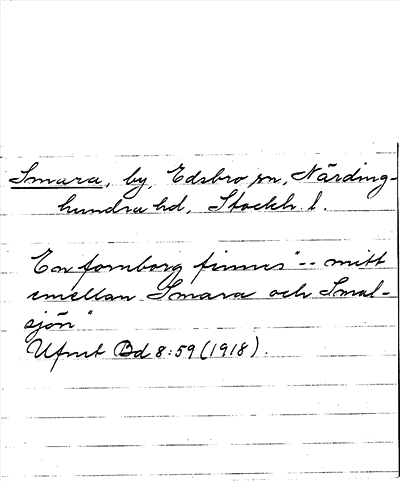 Smara, by, Edsbro sn, Närding-
hundra hd, Stockh. l.
En fornborg finnes "-- mitt
emellan Smara och Smal-
sjön"
Ufmt Bd 8:59 (1918).